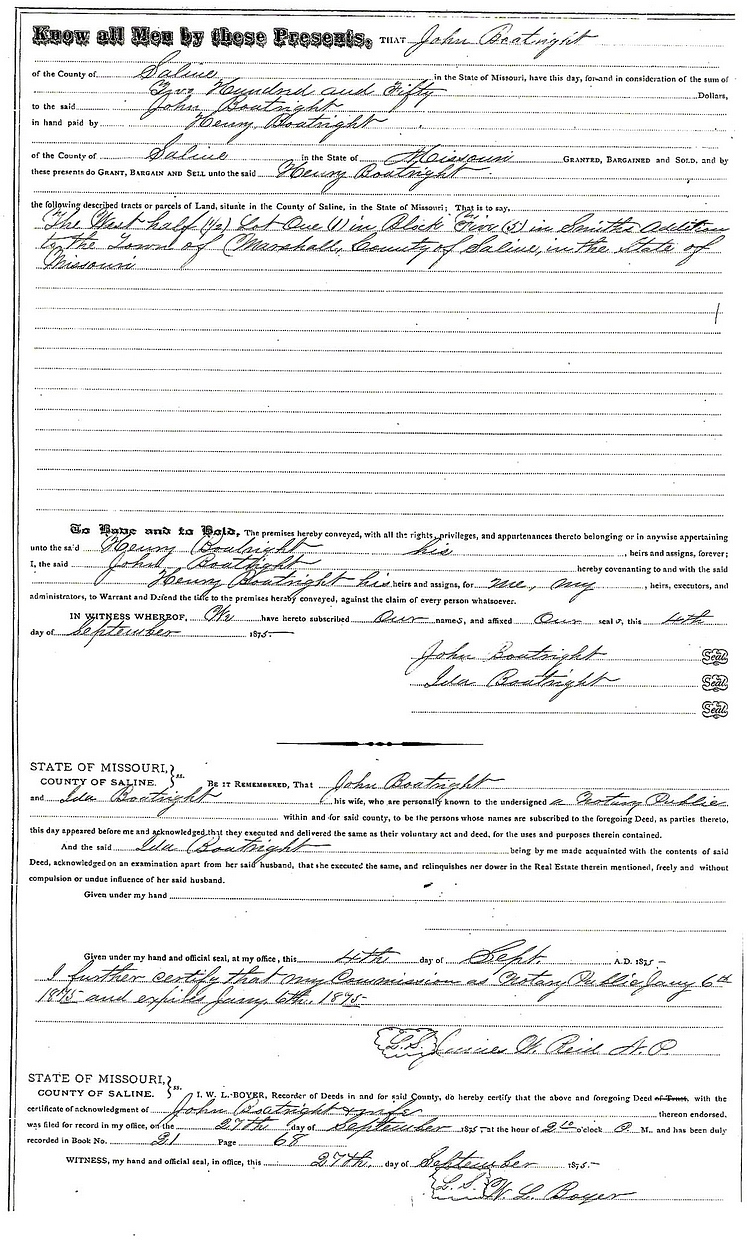 Know all Men by these Presents, THAT John Boatright
of the County of Saline in the State of Missouri, have this day, for and in consideration of the sum of
Two Hundred and Fifty Dollars,
to the said John Boatright
in hand paid by Henry Boatright
of the County of Saline in the State of Missouri GRANTED, BARGAINED and SOLD, and by
these presents do GRANT, BARGAIN AND SELL unto the said Henry Boatright
the following described tracts or parcels of Land, situate in the County of Saline, in the State of Missouri; That is to say,
The West half (1/2) Lot One (1) in Block Five (5) in Smiths Addition
to the Town of Marshall, County of Saline, in the State of
Missouri
To Have and to Hold, The premises hereby conveyed, with all the rights, privileges, and appurtenances thereto belonging or in anywise appertaining
unto the said Henry Boatright his, heirs and assigns, forever;
I, the said John Boatright hereby covenanting to and with the said
Henry Boatright his heirs and assigns, for me, my, heirs, executors, and
administrators, to Warrant and Defend the title to the premises hereby conveyed, against the claim of every person whatsoever.
IN WITNESS WHEREOF, We have hereto subscribed Our names, and affixed Our seals, this 4th
day of September 1875
John Boatright Seal.
Ida Boatright Seal.
Seal.
STATE OF MISSOURI, } ss.
COUNTY OF SALINE. BE IT REMEMBERED, That John Boatright
and Ida Boatright his wife, who are personally known to the undersigned a Notary Public
within and for said county, to be the persons whose names are subscribed to the foregoing Deed, as parties thereto,
this day appeared before me and acknowledged that they executed and delivered the same as their voluntary act and deed, for the uses and purposes therein contained.
And the said Ida Boatright being by me made acquainted with the contents of said
Deed, acknowledged on an examination apart from her said husband, that she executed the same, and relinquishes her dower in the Real Estate therein mentioned, freely and without
compulsion or undue influence of her said husband.
Given under my hand
Given under my hand and official seal, at my office, this 4th day of Sept. A.D. 1875
I further certify that my Commission as Notary Public Jany 6th
1875 and expires Jany. 6th. 1875
L.S. James W. Reid N.P.
STATE OF MISSOURI, } ss.
COUNTY OF SALINE. I, W. L. BOYER, Recorder of Deeds in and for said County, do hereby certify that the above and foregoing Deed of Trust, with the
certificate of acknowledgment of John Boatright & wife thereon endorsed,
was filed for record in my office, on the 27th day of September 1875 at the hour of 2 o'clock P M., and has been duly
recorded in Book No. 21 Page 68
WITNESS, my hand and official seal, in office, this 27th. day of September 1875
L.S. W. L. Boyer